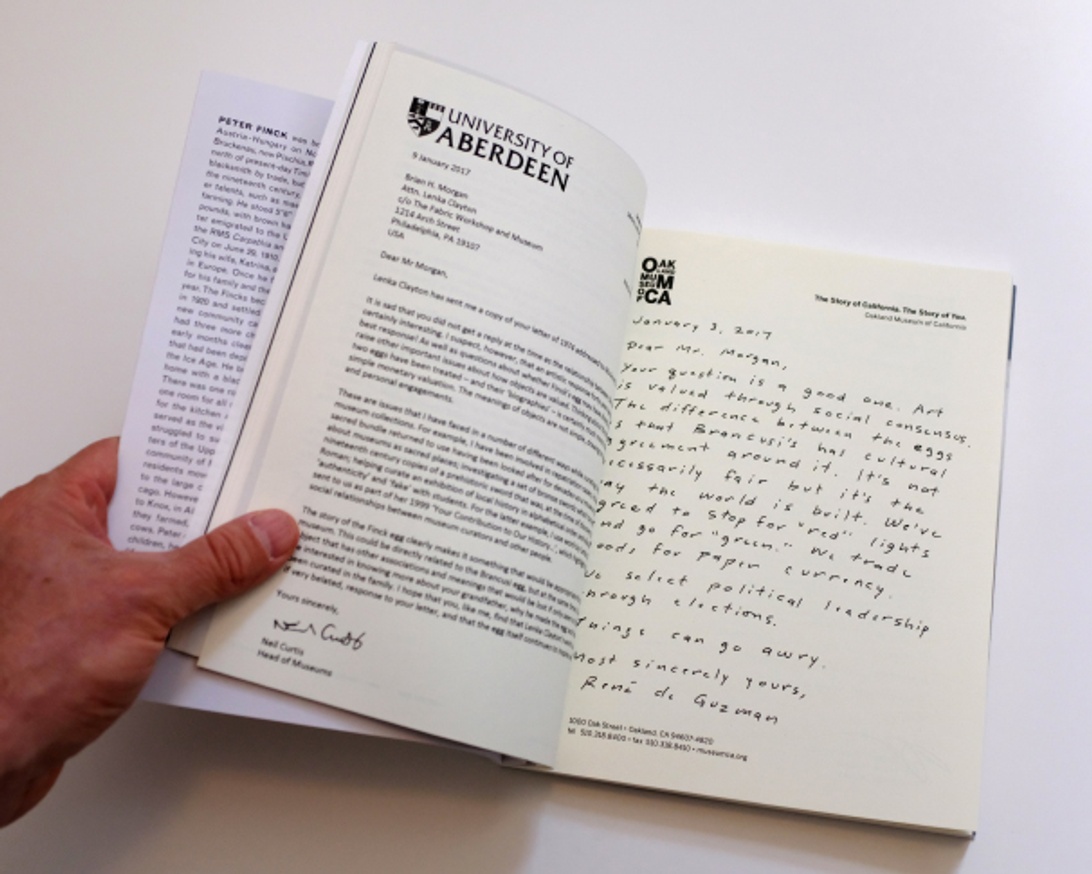 PETER FINCK was
Austria-Hungary on
north of present-day
blacksmith by trade, but
the nineteenth century,
er talents, such as
farming. He stood 5'6"
pounds, with brown
ter emigrated to the
the RMS Carpathia
City on June 29, 1910,
ing his wife, Katrina,
in Europe. Once he
for his family and the
year. The Fincks
in 1920 and settled
new community
had three more
early months
that had been
the Ice Age. He
home with a
There was one
one room for all
for the kitchen
served as the
struggled to
ters of the
community of
residents
to the large
cago. However
to Knox, in
they farmed,
cows. Peter
children,
UNIVERSITY OF
ABERDEEN
9 January 2017
Brian H. Morgan
Attn. Lenka Clayton
c/o The Fabric Workshop and Museum
1214 Arch Street
Philadelphia, PA 19107
USA
Dear Mr Morgan,
Lenka Clayton has sent me a copy of your letter of 1974 addressed
It is sad that you did not get a reply at the time as the relationship
certainly interesting. I suspect, however, that an artistic response
best response! As well as questions about whether Finck's egg
raise other important issues about how objects are valued.
two eggs have been treated – and their 'biographies' – is certainly
simple monetary valuation. The meanings of objects are not simple,
and personal engagements.
These are issues that I have faced in a number of different ways while
museum collections. For example, I have been involved in repatriation
sacred bundle returned to use having been locked after for decades
about museums as sacred places; investigating a set of bronze
nineteenth century copies of a prehistoric sword that was, at the time
Roman; helping curate an exhibition of local history in alphabetical
'authentic' and 'fake' with students. For the latter example, I use
sent to us as part of her 1999 'Your Contribution to Our History...', which
social relationships between museum curators and other people.
The story of the Finck egg clearly makes it something that would be
museum. This could be directly related to the Brancusi egg, but at the same
object that has other associations and meanings that would be lost if only
be interested in knowing more about your grandfather, why he made the egg
been curated in the family. I hope that you, like me, find that Lenka Clayton's
or very belated, response to your letter, and that the egg itself continues to
Yours sincerely,
Neil Curtis
Neil Curtis
Head of Museums
OAK
LAND
MUSEUM
OF CA
The Story of California. The Story of You.
Oakland Museum of California
January 3, 2017
Dear Mr. Morgan,
Your question is a good one. Art
is valued through social consensus.
The difference between the eggs
is that Brancusi's has cultural
agreement around it. It's not
necessarily fair but it's the
way the world is built. We've
agreed to stop for "red" lights
and go for "green." We trade
goods for paper currency.
We select political leadership
through elections.
Things can go awry.
Most sincerely yours,
René de Guzman
1000 Oak Street • Oakland, CA 94607-4820
tel 510.318.8400 • fax 510.318.8400 • museumca.org